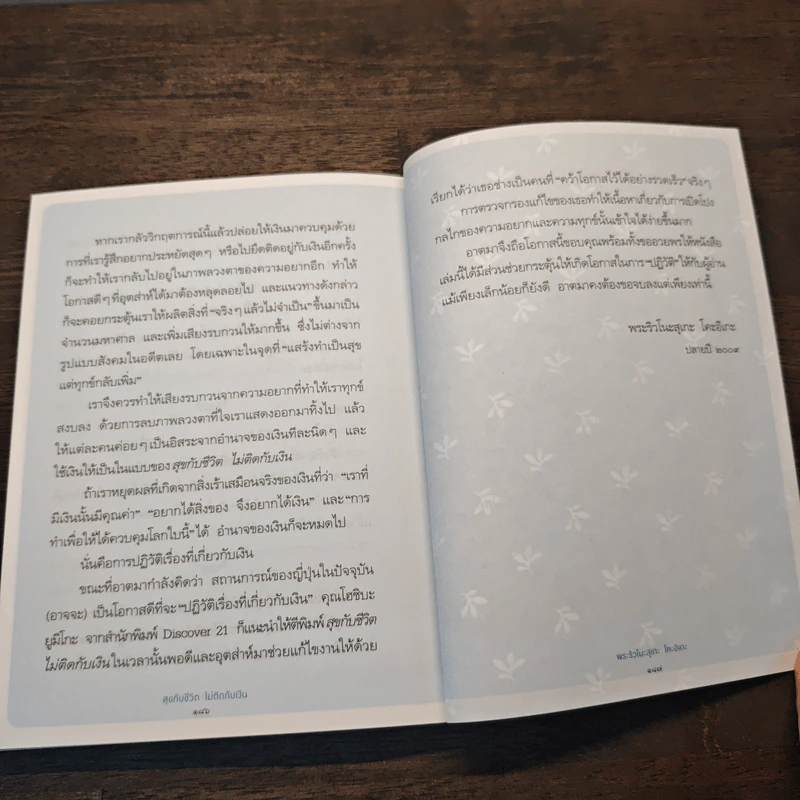 หากเรากลัววิกฤตการณ์นี้แล้วปล่อยให้เงินมาควบคุมด้วย
การที่เรารู้สึกอยากประหยัดสุดๆ หรือไปยึดติดอยู่กับเงินอีกครั้ง
ก็จะทำให้เรากลับไปอยู่ในภาพลวงตาของความอยากอีก ทำให้
โอกาสดีๆ ที่อุตส่าห์ได้มาต้องหลุดลอยไป และแนวทางดังกล่าว
ก็จะคอยกระตุ้นเราให้ผลิตสิ่งที่ “จริงๆ แล้วไม่จำเป็น” ขึ้นมาเป็น
จำนวนมหาศาล และเพิ่มเสียงรบกวนให้มากขึ้น ซึ่งไม่ต่างจาก
รูปแบบสังคมในอดีตเลย โดยเฉพาะในจุดที่ “แสร้งทำเป็นสุข
แต่ทุกข์กลับเพิ่ม”
เราจึงควรทำให้เสียงรบกวนจากความอยากที่ทำให้เราทุกข์
สงบลง ด้วยการลบภาพลวงตาที่ใจเราแสดงออกมาทิ้งไป แล้ว
ให้แต่ละคนค่อยๆ เป็นอิสระจากอำนาจของเงินทีละนิดๆ และ
ใช้เงินให้เป็นในแบบของ สุขกับชีวิต ไม่ติดกับเงิน
ถ้าเราหยุดผลที่เกิดจากสิ่งเร้าเสมือนจริงของเงินที่ว่า “เราที่
มีเงินนั้นมีคุณค่า” “อยากได้สิ่งของ จึงอยากได้เงิน” และ “การ
ทำเพื่อให้ได้ควบคุมโลกใบนี้” ได้ อำนาจของเงินก็จะหมดไป
นั่นคือการปฏิวัติเรื่องที่เกี่ยวกับเงิน
ขณะที่อาตมากำลังคิดว่า สถานการณ์ของญี่ปุ่นในปัจจุบัน
(อาจจะ) เป็นโอกาสดีที่จะ “ปฏิวัติเรื่องที่เกี่ยวกับเงิน” คุณโฮชิบะ
ยูมิโกะ จากสำนักพิมพ์ Discover 21 ก็แนะนำให้ตีพิมพ์ สุขกับชีวิต
ไม่ติดกับเงิน ในเวลานั้นพอดีและอุตส่าห์มาช่วยแก้ไขงานให้ด้วย
สุขกับชีวิต ไม่ติดกับเงิน
๑๘๖
เรียกได้ว่าเธอช่างเป็นคนที่ “คว้าโอกาสไว้ได้อย่างรวดเร็ว” จริงๆ
การตรวจกรองแก้ไขของเธอทำให้เนื้อหาเกี่ยวกับการเปิดโปง
กลไกของความอยากและความทุกข์นั้นเข้าใจได้ง่ายขึ้นมาก
อาตมาจึงถือโอกาสนี้ขอบคุณพร้อมทั้งขออวยพรให้หนังสือ
เล่มนี้ได้มีส่วนช่วยกระตุ้นให้เกิดโอกาสในการ “ปฏิวัติ” ให้กับผู้อ่าน
แม้เพียงเล็กน้อยก็ยังดี อาตมาคงต้องขอจบลงแต่เพียงเท่านี้
พระริวโนะสุเกะ โคะอิเกะ
ปลายปี ๒๐๐๙
พระริวโนะสุเกะ โคะอิเกะ
๑๘๗